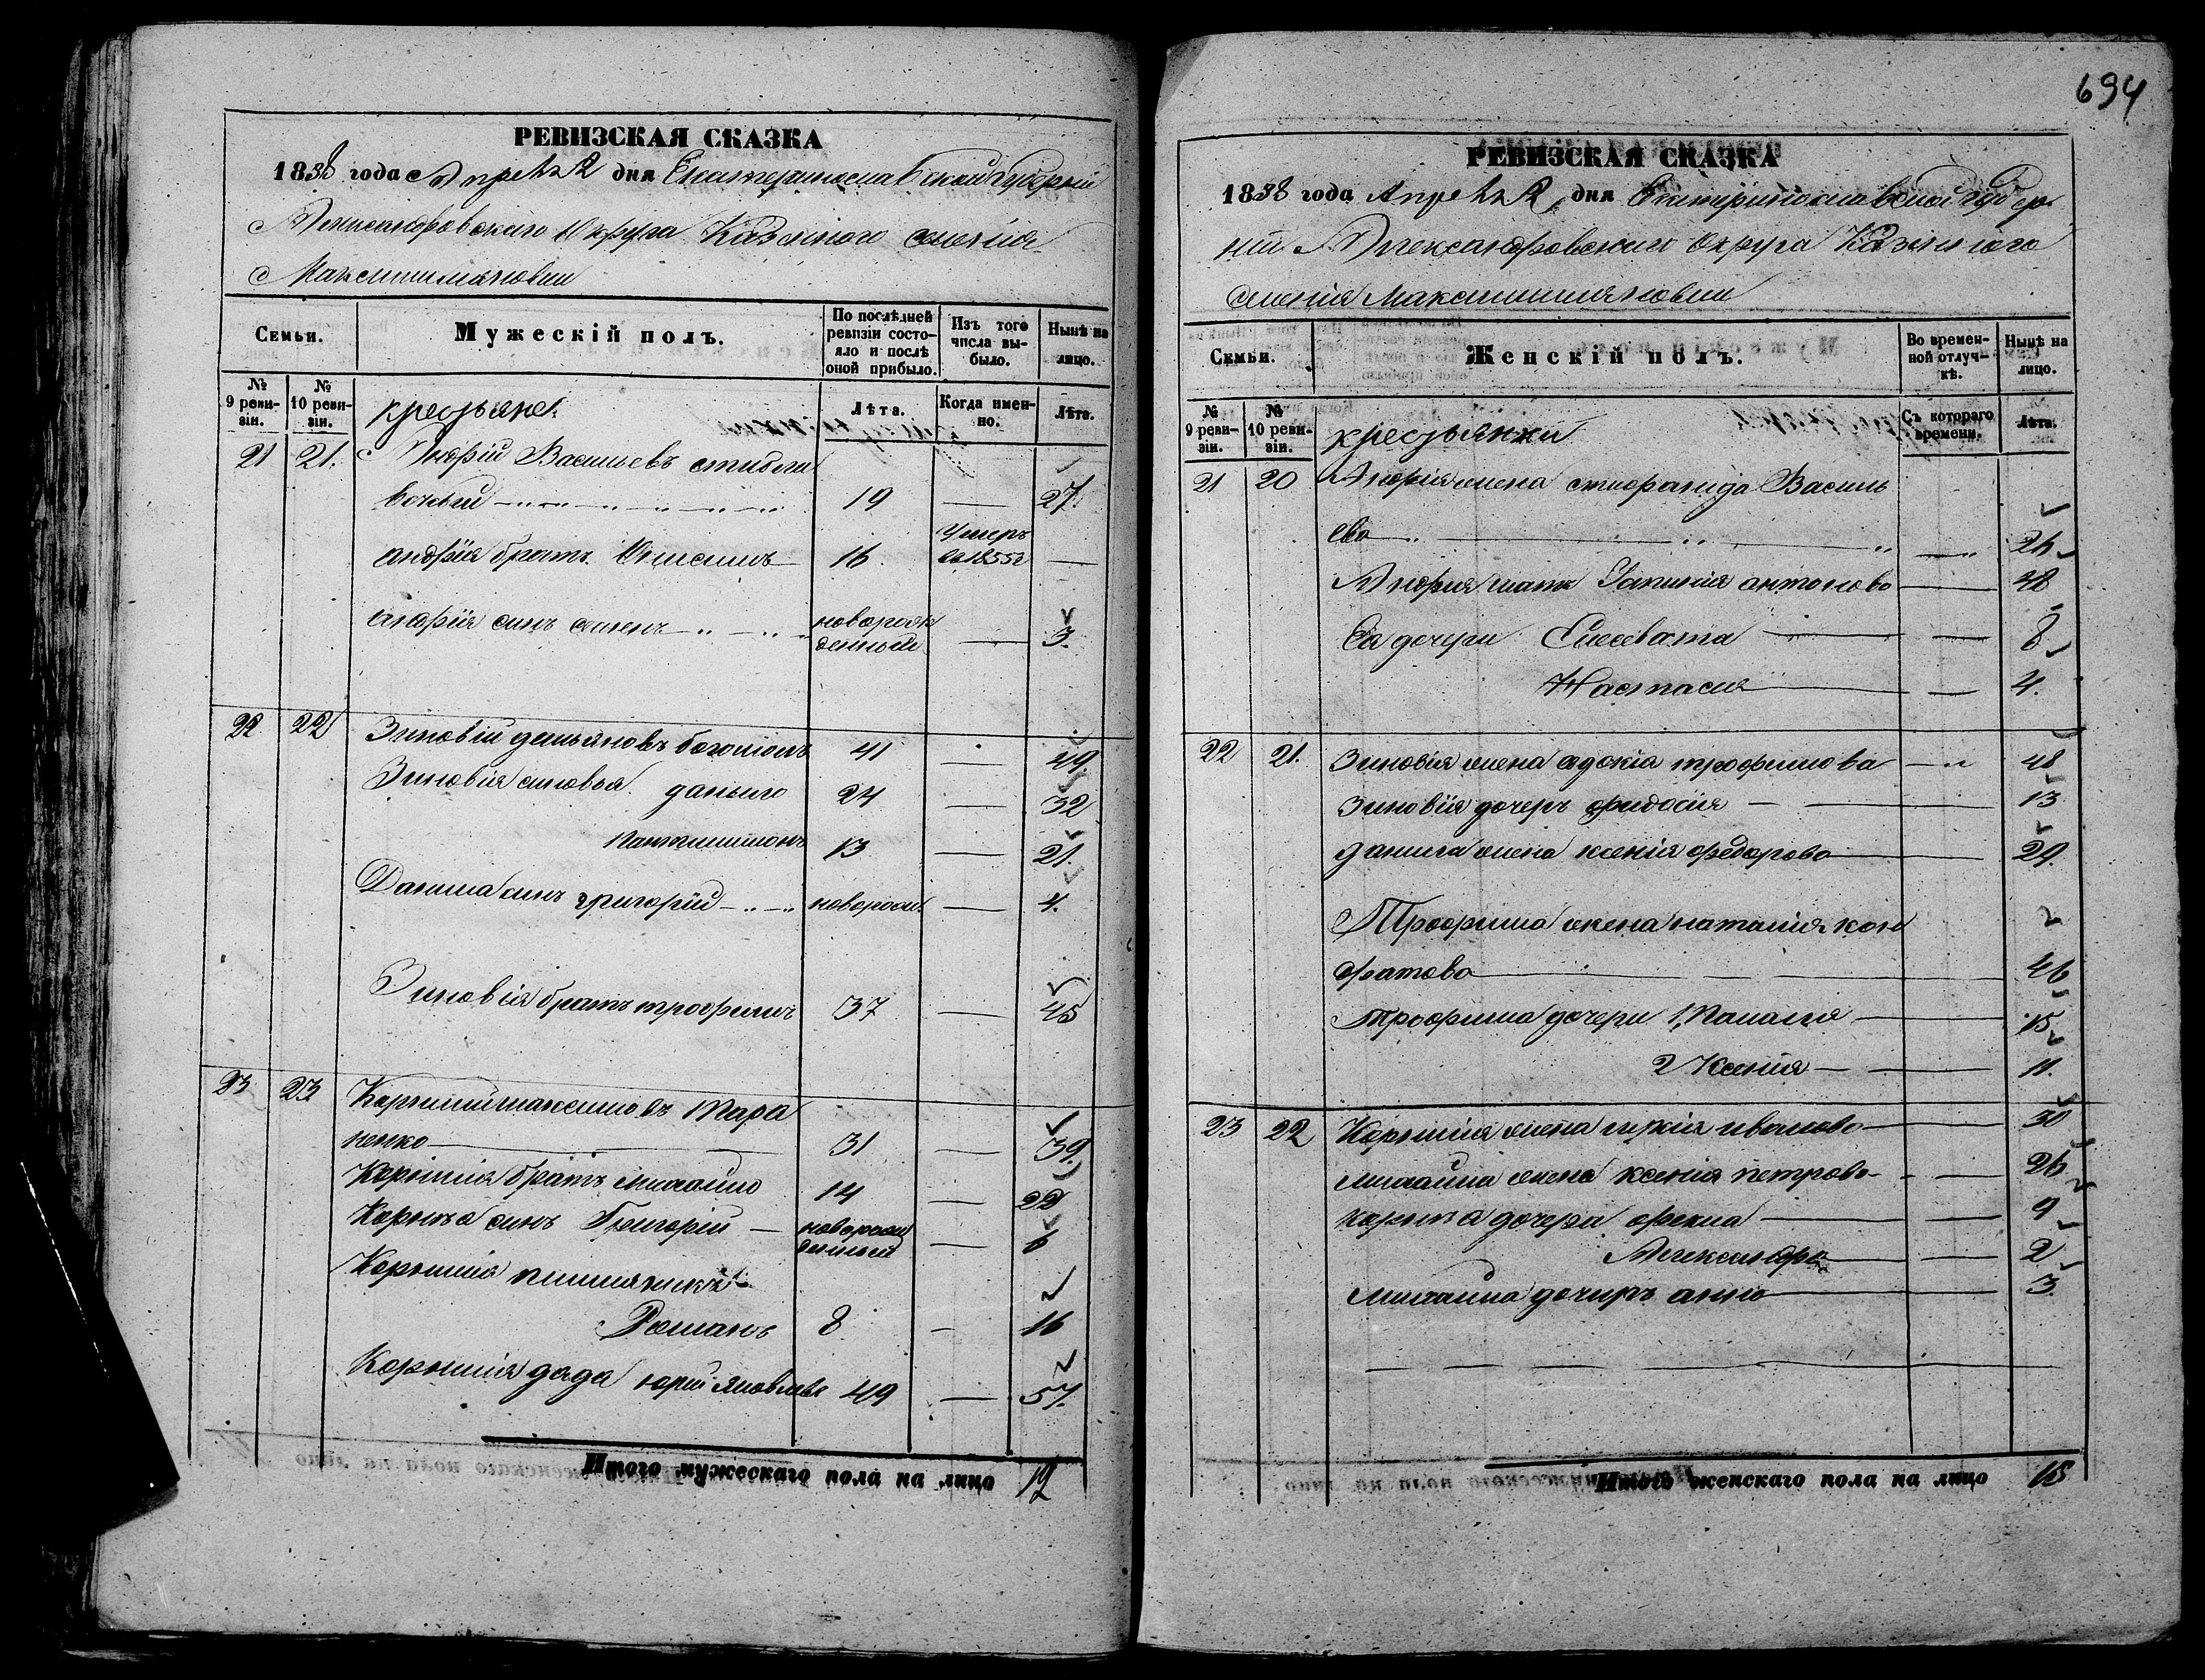 694
РЕВИЗСКАЯ СКАЗКА
1858 года Апреля 2 дня Екатеринославской Губерніи
Александровского Округа Казенного селенія
Максимилановки
Семьи.
Мужескій полъ.
По послѣдней ревизіи состояло и послѣ оной прибыло.
Изъ того числа выбыло.
Нынѣ на лицо.
№ 9 ревизіи.
№ 10 ревизіи.
крестьяне
Лѣта.
Когда именно.
Лѣта.
21 21. Андрій Васильевъ
19 — 27.
андрія братъ Анисимъ 16 Умеръ въ 1855 г —
андрія синъ семенъ новорожденный — 3.
22 22 Зиновій демьяновъ 41 — 49
Зиновія синовья данило 24 — 32
Пантилимонъ 13 — 21.
Данила синъ григорій новорож. — 4.
Зиновія братъ трофимъ 37 — 45
23 23 Корнилий максимовъ Тара
ненко — 31 — 39.
Корнилія братъ михайло 14 — 22
Корнилa синъ Григорій — новорожденный — 6
Корнилія племяникъ
Романъ 8 — 16
Корнилія дядя юрий яковлевъ 49 — 57.
Итого мужескаго пола на лицо 12
РЕВИЗСКАЯ СКАЗКА
1858 года Апреля 2 дня Екатиринославской Губер
ніи Александровского Округа Казенного
селенія Максимиляновки
Семьи.
Женскій полъ.
Во временной отлучкѣ.
Нынѣ на лицо.
№ 9 ревизіи.
№ 10 ревизіи.
крестьянки
Съ котораго времени.
Лѣта.
21 20 Андрія жена стифанида Василь
ева — 26
Андрия мать антонова — 48
Ея дочери — 8
Настасия — 4.
22 21. Зиновія жена адокія трофимова — 48
Зиновія дочеръ фидосія — 13
данила жена ксенія федорова — 29
Трофима жена наталія кон
дратова — 46
Трофима дочери 1, Палагія — 15
2 Ксенія — 11.
23 22 Корнилія жена ивонова — 30
михайла жена ксенія петрова — 26
корнила дочери фекла — 9
Александра — 2
михайла дочиръ анна — 3
Итого женскаго пола на лицо 15